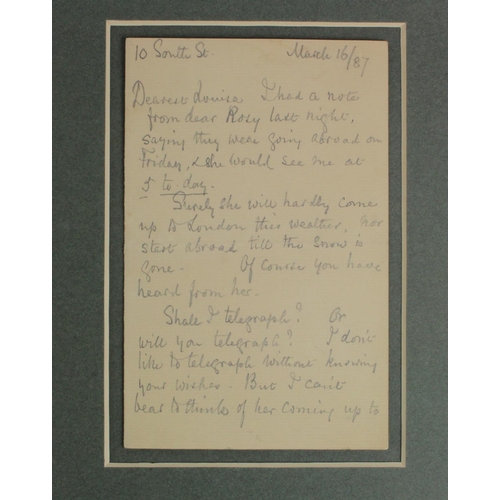 10 South St March 16/87
Dearest Louisa I had a note
from dear Rosy last night,
saying they were going abroad on
Friday, & she would see me at
5 to day.
Surely she will hardly come
up to London this weather, nor
start abroad till the snow is
gone. Of course you have
heard from her.
Shall I telegraph? Or
will you telegraph? I don't
like to telegraph without knowing
your wishes. But I can't
bear to think of her coming up to